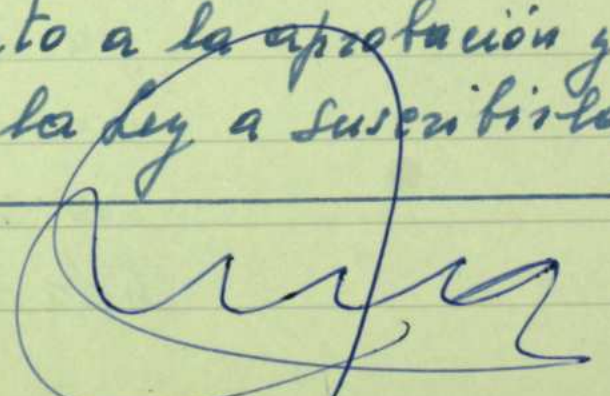 to a la aprobación y
la Ley a suscribirlo